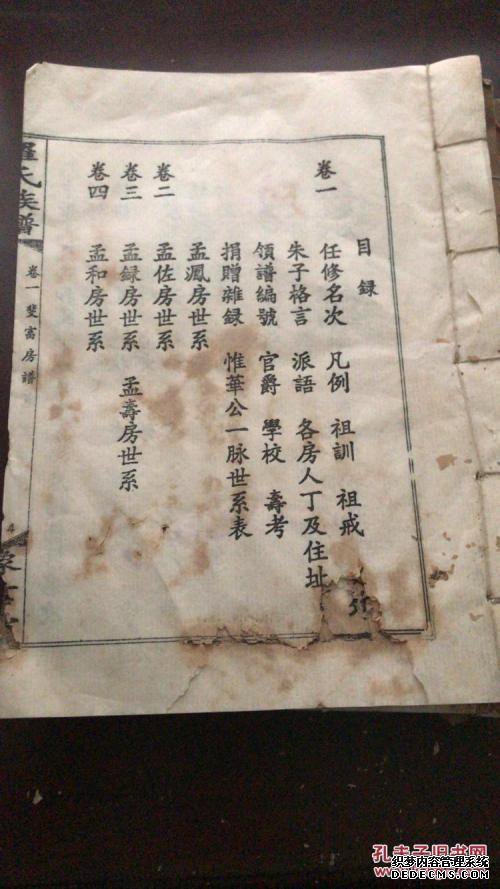 目録
卷一 任修名次 凡例 祖訓 祖戒
朱子格言 派語 各房人丁及住址
領譜編號 官爵 學校 壽考
捐贈雜録 惟華公一脉世系表
孟鳳房世系
卷二 孟佐房世系
卷三 孟録房世系 孟壽房世系
卷四 孟和房世系
羅氏族譜
卷一 斐富房譜
孔夫子旧书网
织梦内容管理系统
DEDECMS.COM